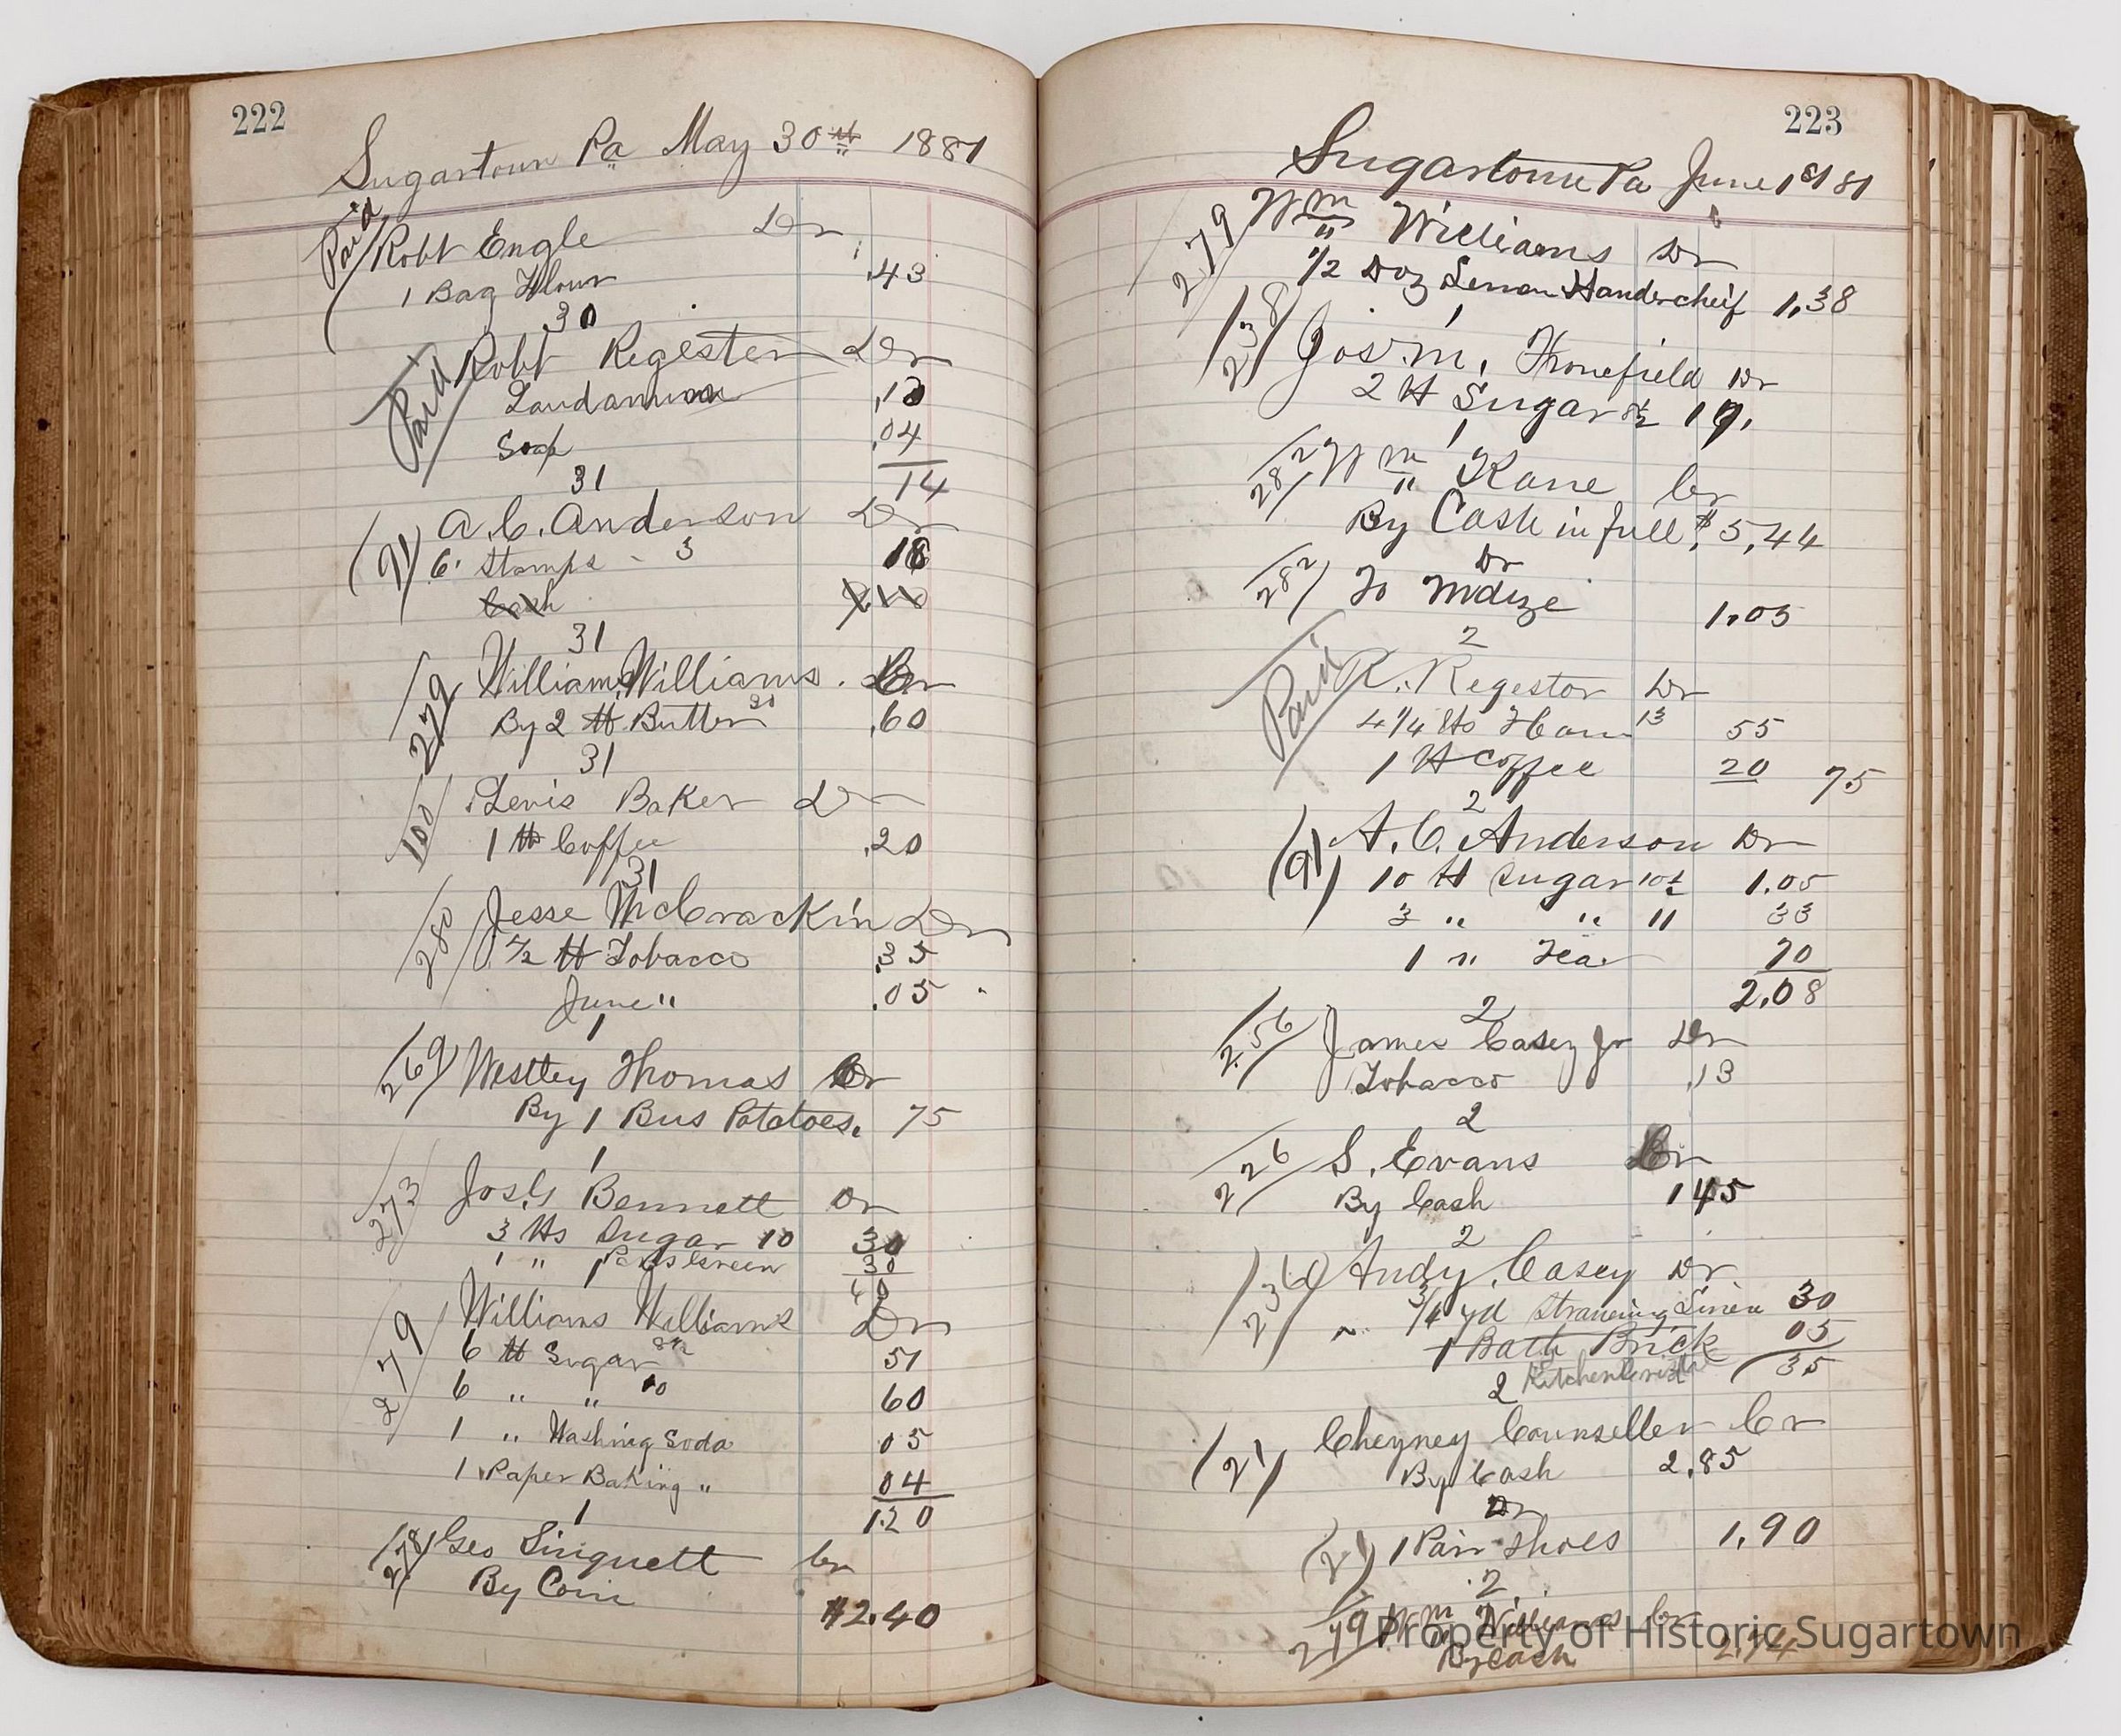 222
Sugartown Pa May 30th 1881
Paid Robt Engle Dr
1 Bag Flour .43
30
Paid Robt Regester Dr
Laudanum .10
Soap .04
14
31
(91) A. C. Anderson Dr
6 Stamps - 3 18
Cash
31
279 William Williams. Cr
By 2 lb Butter 30 .60
31
100 Levis Baker Dr
1 lb Coffee .20
31
280 Jesse McCrackin Dr
1/2 lb Tobacco .35
June " .05
1
269 Westley Thomas Cr
By 1 Bus Potatoes. 75
1
273 Jos. G Bennett Dr
3 lbs Sugar 10 30
1 " Paris Green 30
60
279 Williams Williams Dr
6 lb Sugar 8½ 51
6 " " 10 60
1 " Washing Soda 05
1 Paper Baking " 04
1.20
1
278 Geo Sinquett Cr
By Coin
$2.40
223
Sugartown Pa June 1st 81
279 Wm Williams Dr
1/2 Doz Lenon Handercheif 1,38
1
238 Jos. M. Thonefield Dr
2 lb Sugar 8½ 17.
1
282 Wm Kane Cr
By Cash in full $5,44
Dr
282 To Mdize 1.05
2
Paid R. Regestor Dr
4 1/4 lbs Ham 13 55
1 lb Coffee 20 75
2
(91) A. C. Anderson Dr
10 lb Sugar 10½ 1.05
3 " " 11 33
1 " Tea 70
2.08
2
256 James Casey Jr Dr
Tobacco .13
2
226 S. Evans Cr
By Cash 145
2
236 Andy Casey Dr
3/4 yd Straining Linen 30
1 Bath Brick 05
35
2
(21) Cheyney Counseller Cr
By Cash 2.85
Dr
(21) 1 Pair Shoes 1.90
2
279 Wm Williams Cr
By Cash 2.74
Property of Historic Sugartown